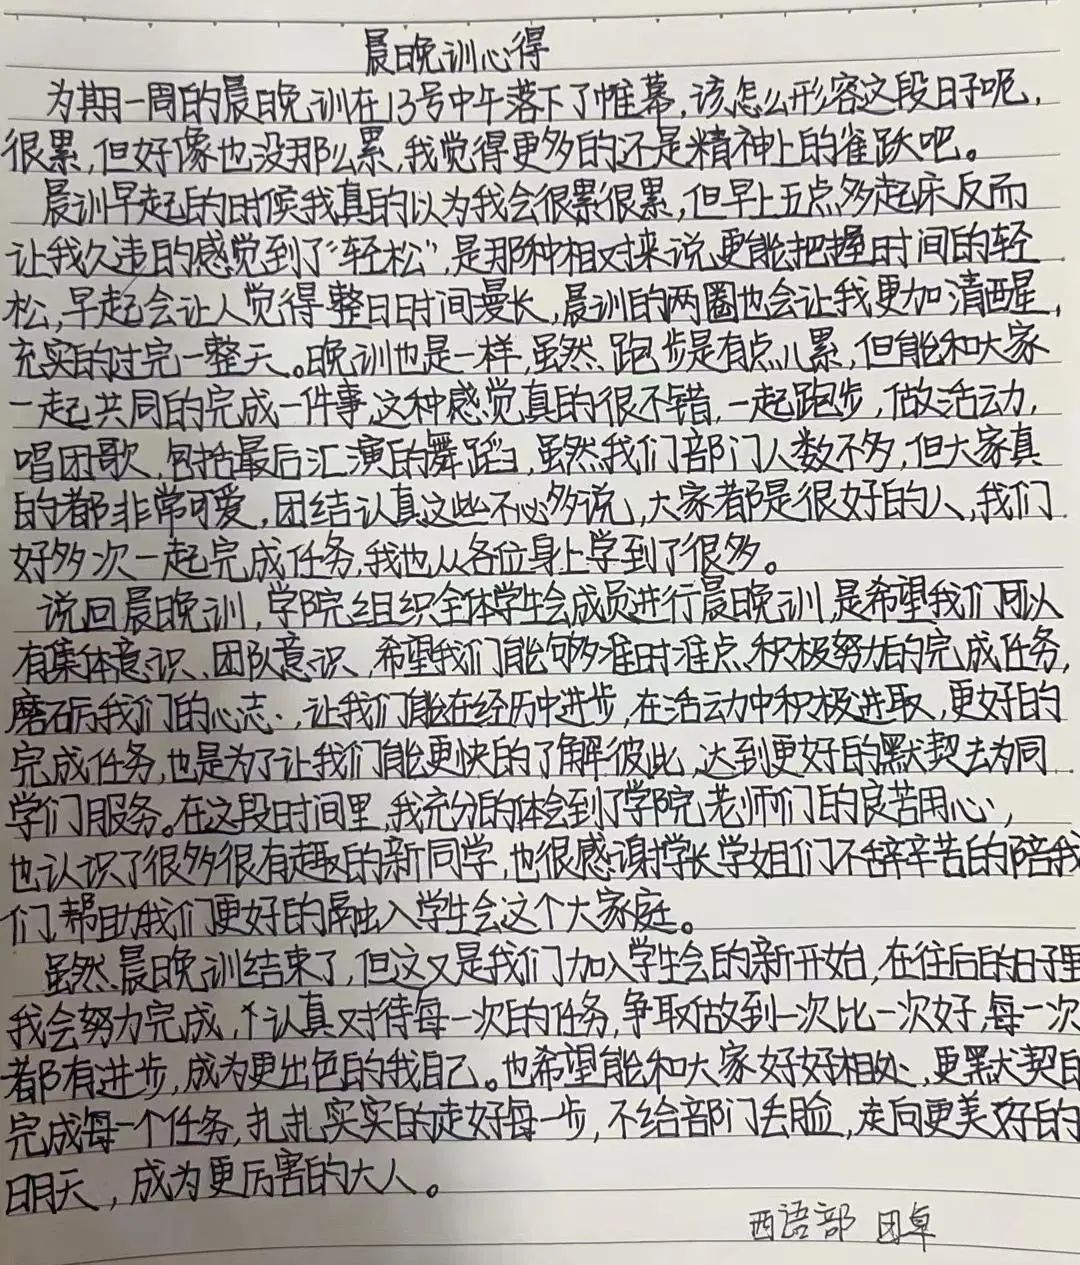 晨晚训心得
为期一周的晨晚训在13号中午落下了帷幕，该怎么形容这段日子呢，
很累，但好像也没那么累，我觉得更多的还是精神上的雀跃吧。
晨训早起的时候我真的以为我会很累很累，但早上五点多起床反而
让我久违的感觉到了“轻松”，是那种相对来说更能把握时间的轻
松，早起会让人觉得整日时间漫长，晨训的两圈也会让我更加清醒，
充实的过完一整天。晚训也是一样，虽然跑步是有点儿累，但能和大家
一起共同的完成一件事，这种感觉真的很不错，一起跑步，做活动，
唱团歌，包括最后汇演的舞蹈，虽然我们部门人数不多，但大家真
的都非常可爱，团结认真这些不必多说，大家都是很好的人，我们
好多次一起完成任务，我也从各位身上学到了很多。
说回晨晚训，学院组织全体学生会成员进行晨晚训，是希望我们可以
有集体意识、团队意识，希望我们能够准时准点、积极努力的完成任务，
磨砺我们的心志，让我们能在经历中进步，在活动中积极进取，更好的
完成任务，也是为了让我们能更快的了解彼此，达到更好的默契去为同
学们服务。在这段时间里，我充分的体会到了学院、老师们的良苦用心，
也认识了很多很有趣的新同学，也很感谢学长学姐们不辞辛苦的陪我
们，帮助我们更好的融入学生会这个大家庭。
虽然晨晚训结束了，但这又是我们加入学生会的新开始，在往后的日子里
我会努力完成，认真对待每一次的任务，争取做到一次比一次好，每一次
都有进步，成为更出色的我自己。也希望能和大家好好相处，更默契的
完成每一个任务，扎扎实实的走好每一步，不给部门丢脸，走向更美好的
明天，成为更厉害的大人。
西语部 田卓